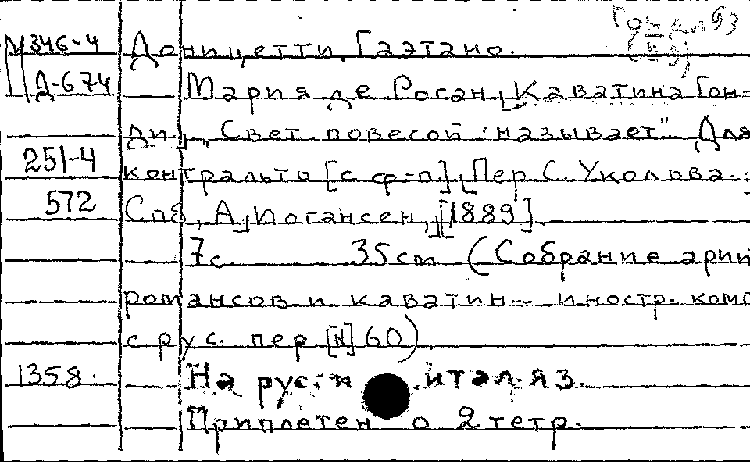 М 346-4 Доницетти, Гаэтано.
Д-674 Мария де Роган, Каватина Гон-
ди, „Свет повесой называет". Для
251-4 контральто [с ф-п], Пер. С. Уколова.
572 Спб, А. Иогансен, [1889].
7с. 35cm (Собрание арий
романсов и каватин иностр. комп
с рус. пер. [№] 60)
1358. На русск итал. яз.
Приплетен о 2 тетр.